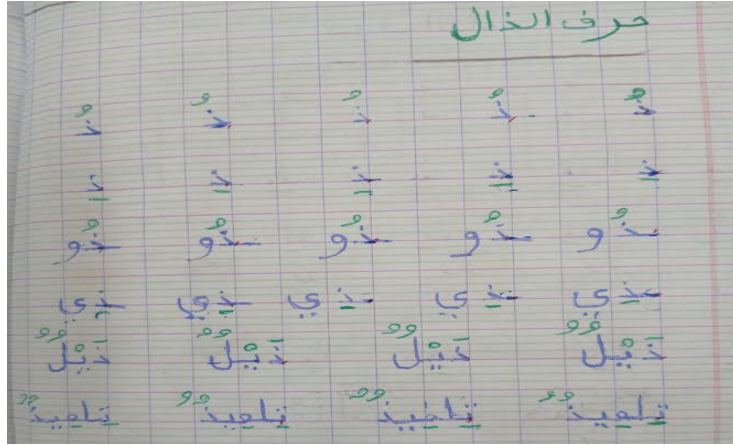 حرف الذال
ذُ ذُ ذُ ذُ ذُ
ذِ ذِ ذِ ذِ ذِ
ذُو ذُو ذُو ذُو ذُو
ذِي ذِي ذِي ذِي ذِي
ذَيْلٌ ذَيْلٌ ذَيْلٌ ذَيْلٌ
تِلمِيذٌ تِلمِيذٌ تِلمِيذٌ تِلمِيذٌ